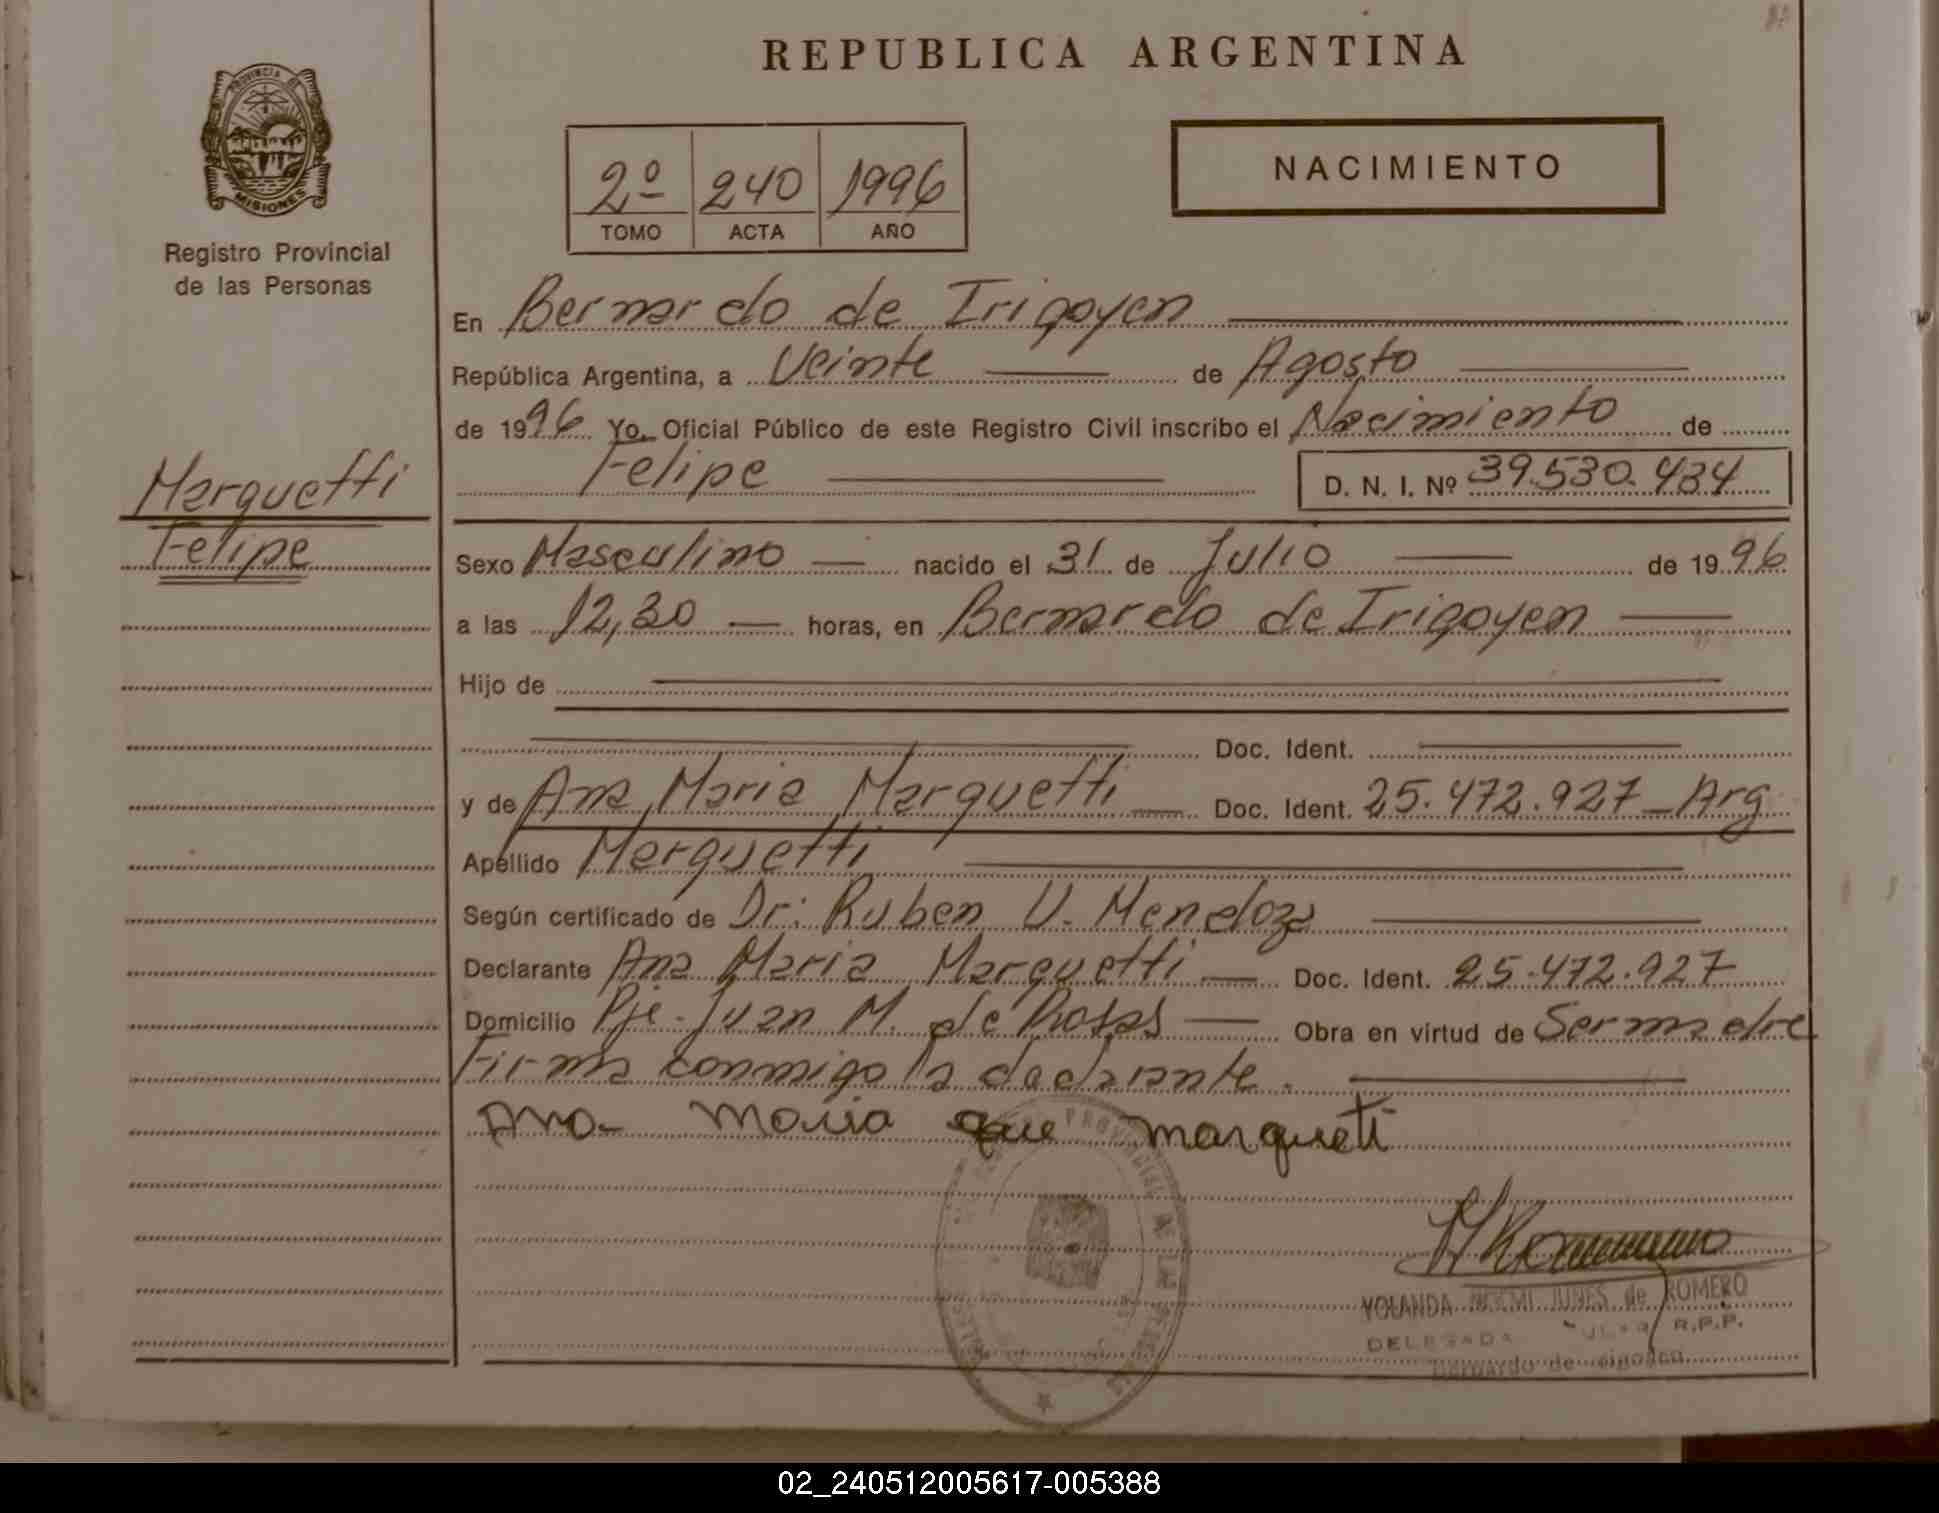 REPUBLICA ARGENTINA
PROVINCIA DE
MISIONES
Registro Provincial
de las Personas
2º 240 1996
TOMO ACTA AÑO
NACIMIENTO
En Bernardo de Irigoyen
República Argentina, a Veinte de Agosto
de 1996 Yo, Oficial Público de este Registro Civil inscribo el Nacimiento de
Felipe D. N. I. Nº 39.530.434
Marquetti
Felipe
Sexo Masculino nacido el 31 de Julio de 1996
a las 12,30 horas, en Bernardo de Irigoyen
Hijo de
Doc. Ident.
y de Ana Maria Marquetti Doc. Ident. 25.472.927 - Arg
Apellido Marquetti
Según certificado de Dr: Ruben V. Mendoza
Declarante Ana Maria Marquetti Doc. Ident. 25.472.927
Domicilio Pje. Juan M. de Rosas Obra en virtud de Ser madre
Firma conmigo la declarante.
Ana- Maria que marqueti
PROVINCIAL DE LAS
YOLANDA NOEMI JUNES de ROMERO
DELEGADA R.P.P.
Bernardo de
02_240512005617-005388